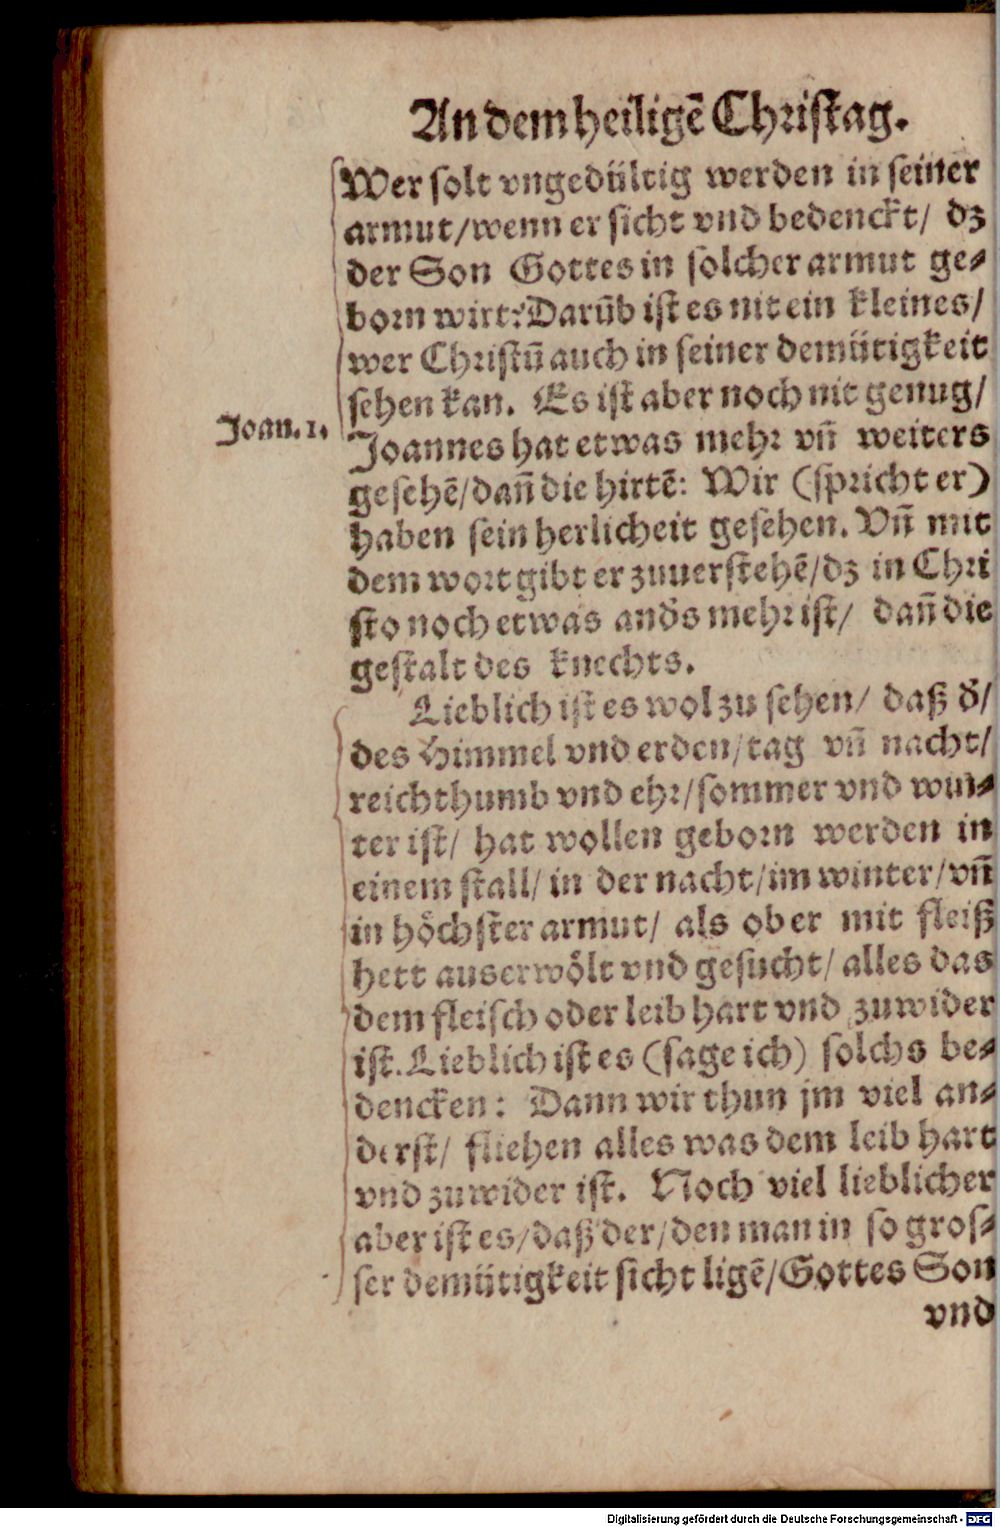 An dem heiligē Christag.
Wer solt vngedültig werden in seiner
armut/wenn er sicht vnd bedenckt/ dz
der Son Gottes in solcher armut ge-
born wirt? Darūb ist es nit ein kleines/
wer Christū auch in seiner demütigkeit
sehen kan. Es ist aber noch nit genug/
Joan. 1.
Joannes hat etwas mehr vñ weiters
gesehē/dañ die hirtē: Wir (spricht er)
haben sein herlicheit gesehen. Vñ mit
dem wort gibt er zuuerstehē/dz in Chri
sto noch etwas anďs mehr ist/ dañ die
gestalt des knechts.
Lieblich ist es wol zu sehen/ daß ď/
des Himmel vnd erden/tag vñ nacht/
reichthumb vnd ehr/sommer vnd win-
ter ist/ hat wollen geborn werden in
einem stall/ in der nacht/im winter/vñ
in hoͤchster armut/ als ob er mit fleiß
hett auserwoͤlt vnd gesucht/ alles das
dem fleisch oder leib hart vnd zuwider
ist. Lieblich ist es (sage ich) solchs be-
dencken: Dann wir thun jm viel an-
derst/ fliehen alles was dem leib hart
vnd zuwider ist. Noch viel lieblicher
aber ist es/daß der/den man in so gros-
ser demütigkeit sicht ligē/Gottes Son
vnd
Digitalisierung gefördert durch die Deutsche Forschungsgemeinschaft - DFG